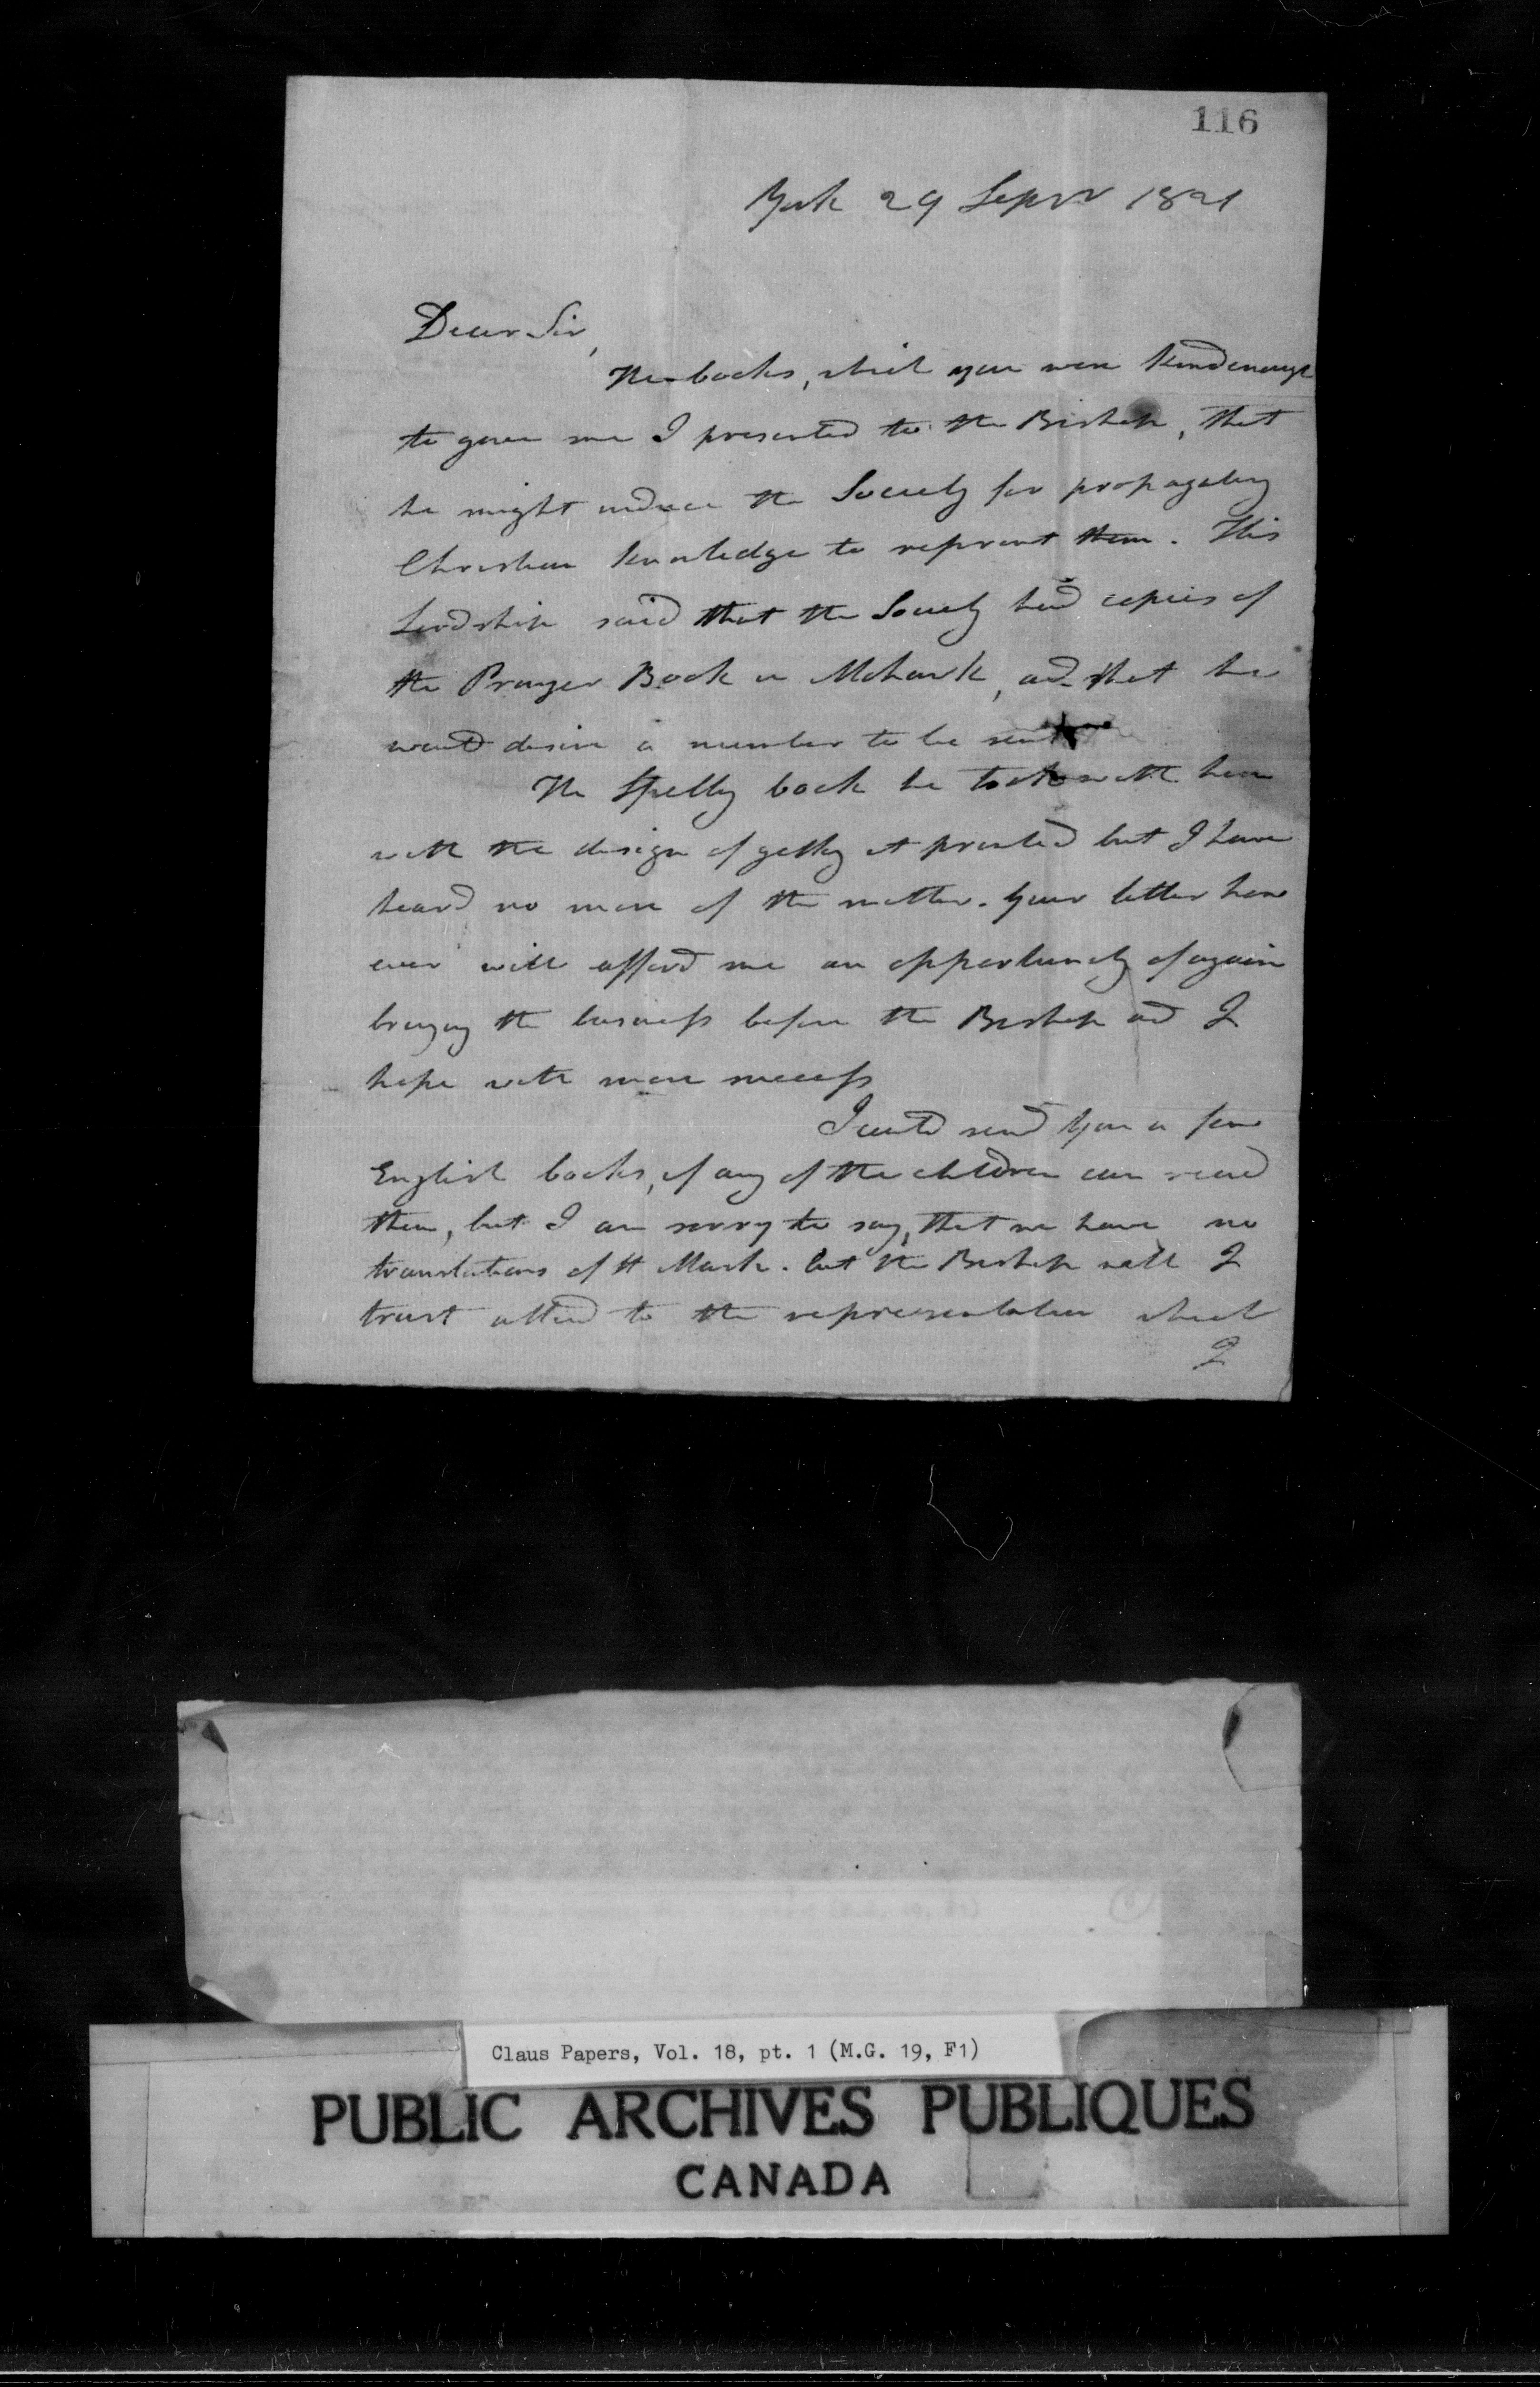 116
York 29 Sepr 1821
Dear Sir,
The books, which you were kind enough
to give me I presented to the Bishop, that
he might induce the Society for propagating
Christian knowledge to reprint them. His
Lordship said that the Society had copies of
the Prayer Book in Mohawk, and that he
would desire a number to be sent
The Spelling book he took with him
with the design of getting it printed but I have
heard no more of the matter. Your letter how
ever will afford me an opportunity of again
bringing the business before the Bishop and I
hope with more success
I could send you a few
English books, if any of the children can read
them, but I am sorry to say, that we have no
translations of St Mark. but the Bishop will I
trust attend to the representation which
I
Claus Papers, Vol. 18, pt. 1 (M.G. 19, F1)
PUBLIC ARCHIVES PUBLIQUES
CANADA